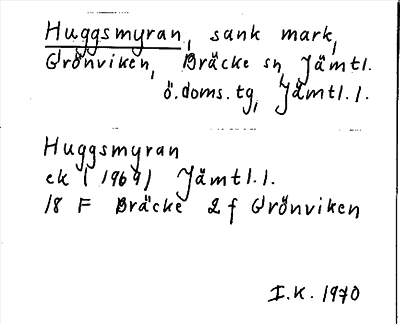 Huggsmyran, sank mark,
Grönviken, Bräcke sn, Jämtl.
ö.doms.tg, Jämtl.l.
Huggsmyran
ek (1969) Jämtl.l.
18 F Bräcke 2 f Grönviken
I.K. 1970